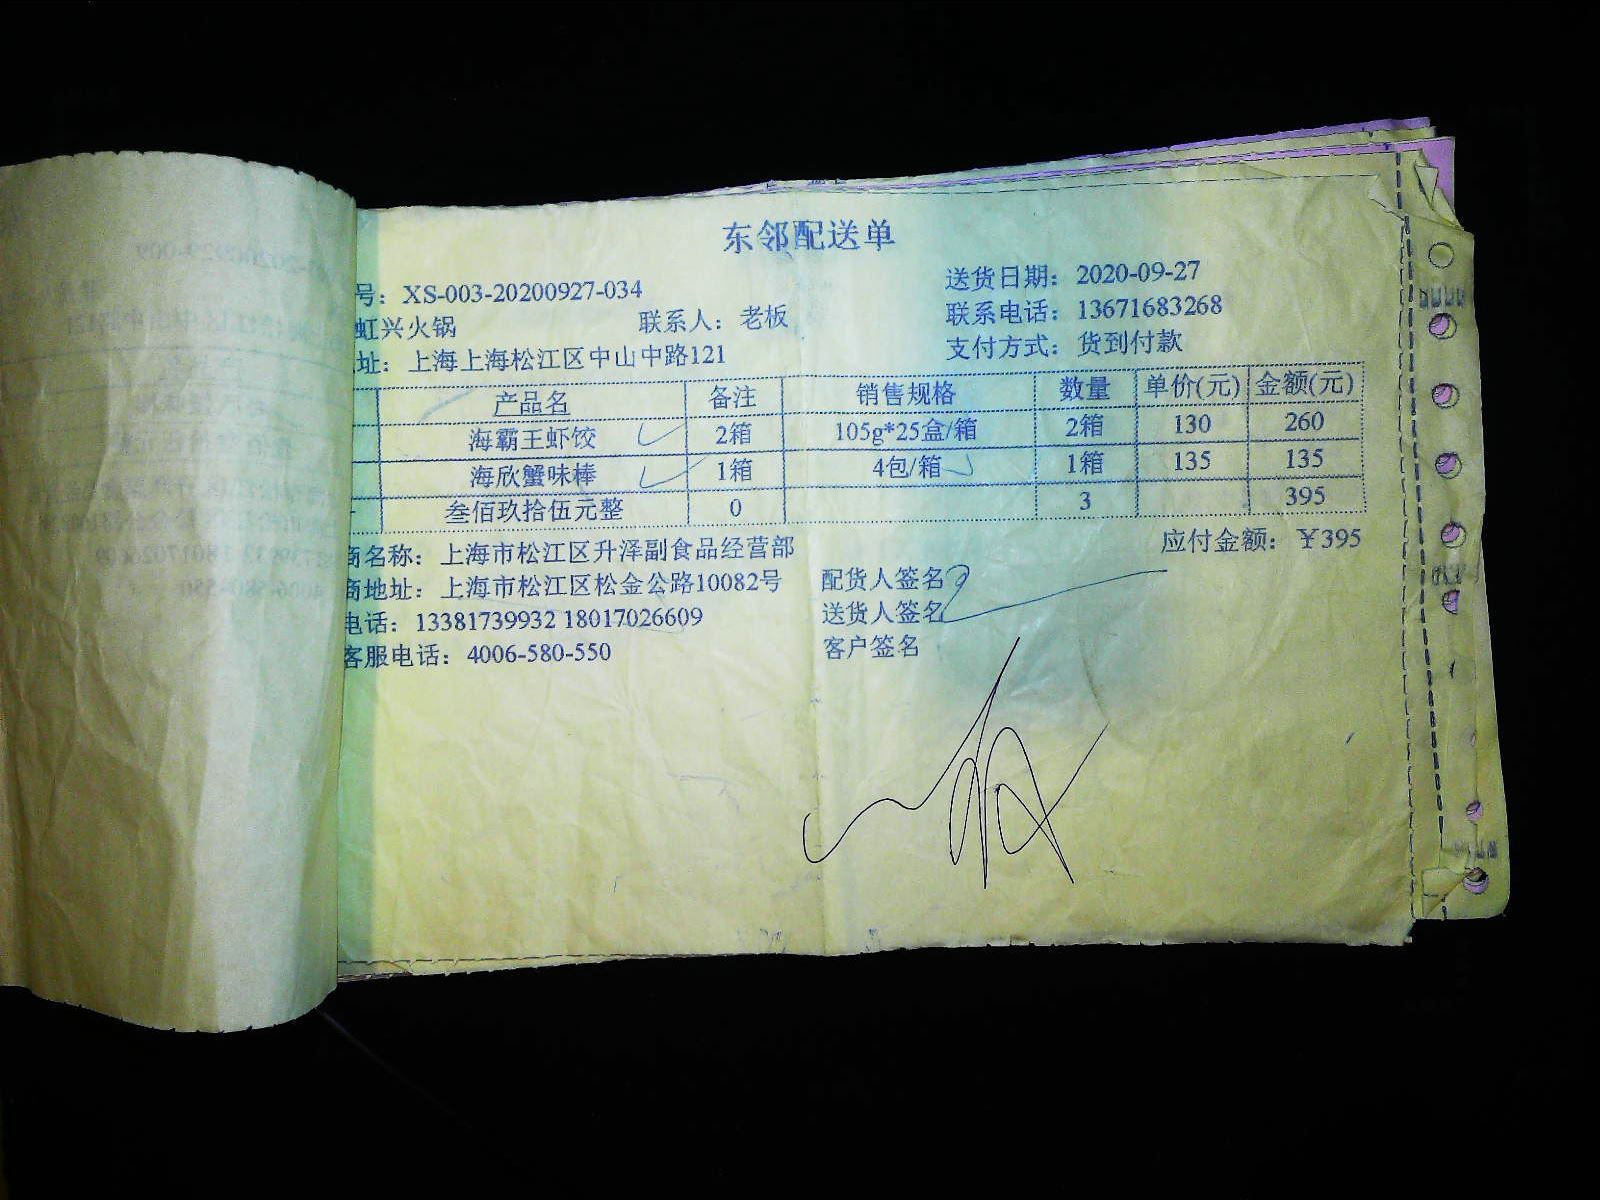 东邻配送单
号：XS-003-20200927-034 送货日期：2020-09-27
虹兴火锅 联系人：老板 联系电话：13671683268
址：上海上海松江区中山中路121 支付方式：货到付款
产品名 备注 销售规格 数量 单价(元) 金额(元)
海霸王虾饺 2箱 105g*25盒/箱 2箱 130 260
海欣蟹味棒 1箱 4包/箱 1箱 135 135
叁佰玖拾伍元整 0 3 395
商名称：上海市松江区升泽副食品经营部 应付金额：￥395
商地址：上海市松江区松金公路10082号 配货人签名
电话：13381739932 18017026609 送货人签名
客服电话：4006-580-550 客户签名